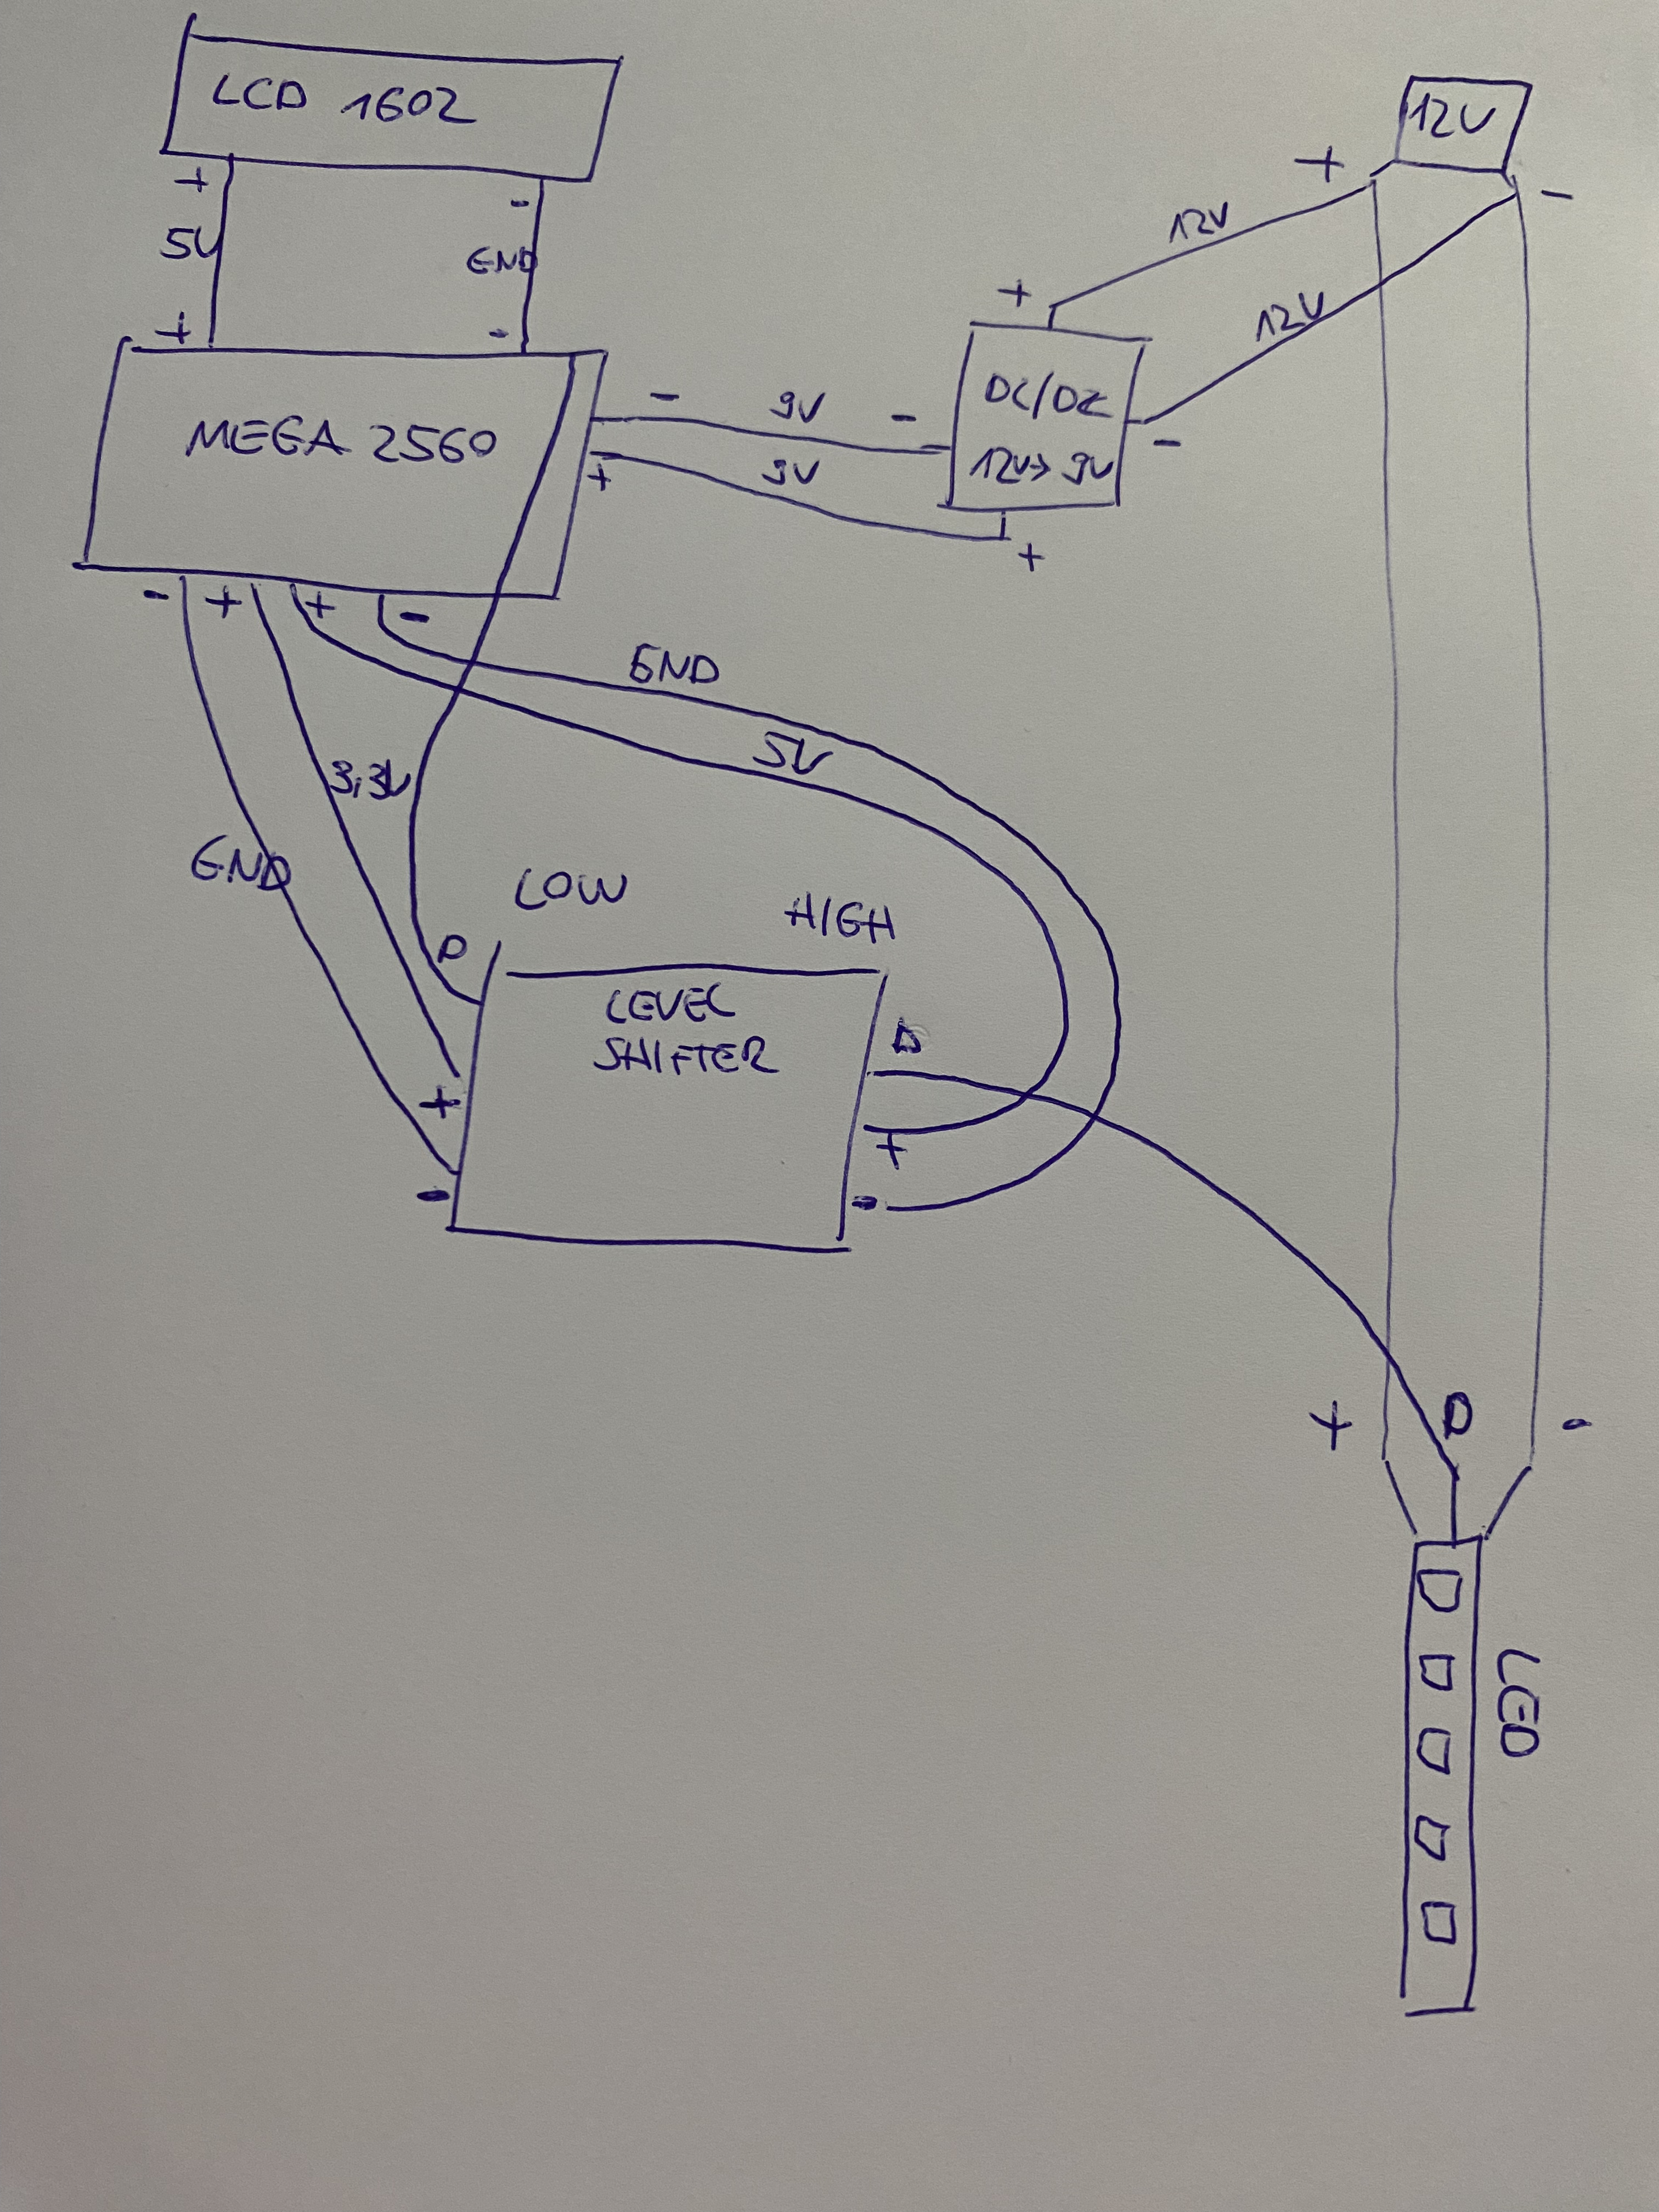 LCD 1602
12V
+
-
+
-
5V
GND
12V
12V
+
-
+
MEGA 2560
-
9V
-
DC/DC
12V→ 9V
-
+
9V
+
-
+
+
-
GND
5V
3,3V
GND
LOW
HIGH
D
LEVEL
SHIFTER
D
+
+
-
-
+
D
-
LED